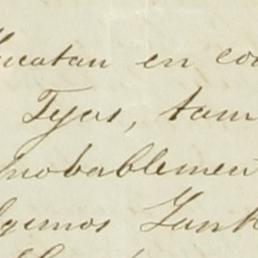 Yucatan en co
Tyas, tam
probablemen
lgemos Tank